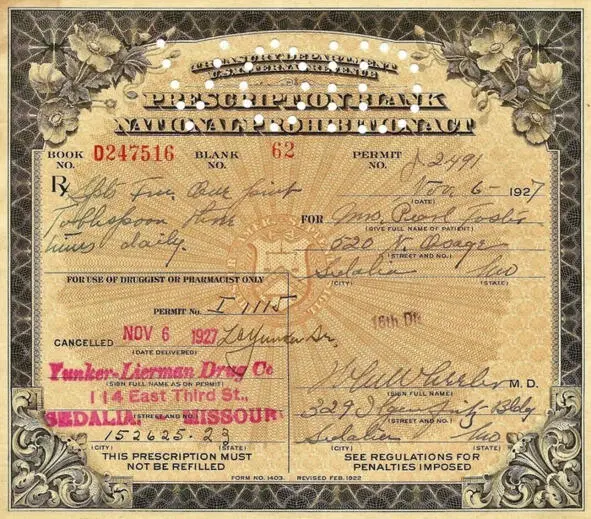 TREASURY DEPARTMENT
U.S. INTERNAL REVENUE
PRESCRIPTION BLANK
NATIONAL PROHIBITION ACT
BOOK NO. D247516 BLANK NO. 62 PERMIT NO. J 2491
Nov 6- 1927
(DATE)
Rx Spts Fru. One pint
Tablespoon three
times daily.
FOR Mrs. Pearl Foster
(GIVE FULL NAME OF PATIENT)
620 N. Osage
(STREET AND NO.)
Sedalia Mo
(CITY) (STATE)
FOR USE OF DRUGGIST OR PHARMACIST ONLY
PERMIT NO. I 1115
16th Di
CANCELLED NOV 6 1927
(DATE DELIVERED)
Yunker-Lierman Drug Co
(SIGN FULL NAME AS ON PERMIT)
114 East Third St.,
(STREET AND NO.)
SEDALIA, - MISSOURI
152625.23
(CITY) (STATE)
THIS PRESCRIPTION MUST
NOT BE REFILLED
M.D.
(SIGN FULL NAME)
329 Bldg
(STREET AND NO.)
Sedalia Mo
(CITY) (STATE)
SEE REGULATIONS FOR
PENALTIES IMPOSED
FORM NO. 1403. REVISED FEB. 1922